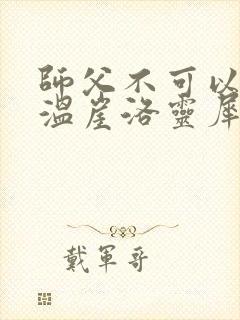 師父不可以
溫崖洛靈犀
戴軍哥